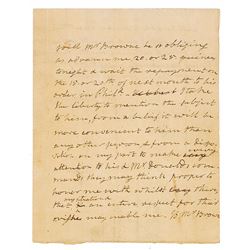 Will Mr. Browne be so obliging
as advance me 20 or 25 guineas
tonight & wait the repayment on
the 15 or 20th of next month to his
order in Phila. I take
the liberty to mention the subject
to him, from a belief it will be
more convenient to him than
any other person & from a dispo-
sition on my part to make every
attention to his & Mr. Donald's com-
mands they may think proper to
honor me with whilst there,
that an entire respect for this
may enable me. J. Mr. Browne